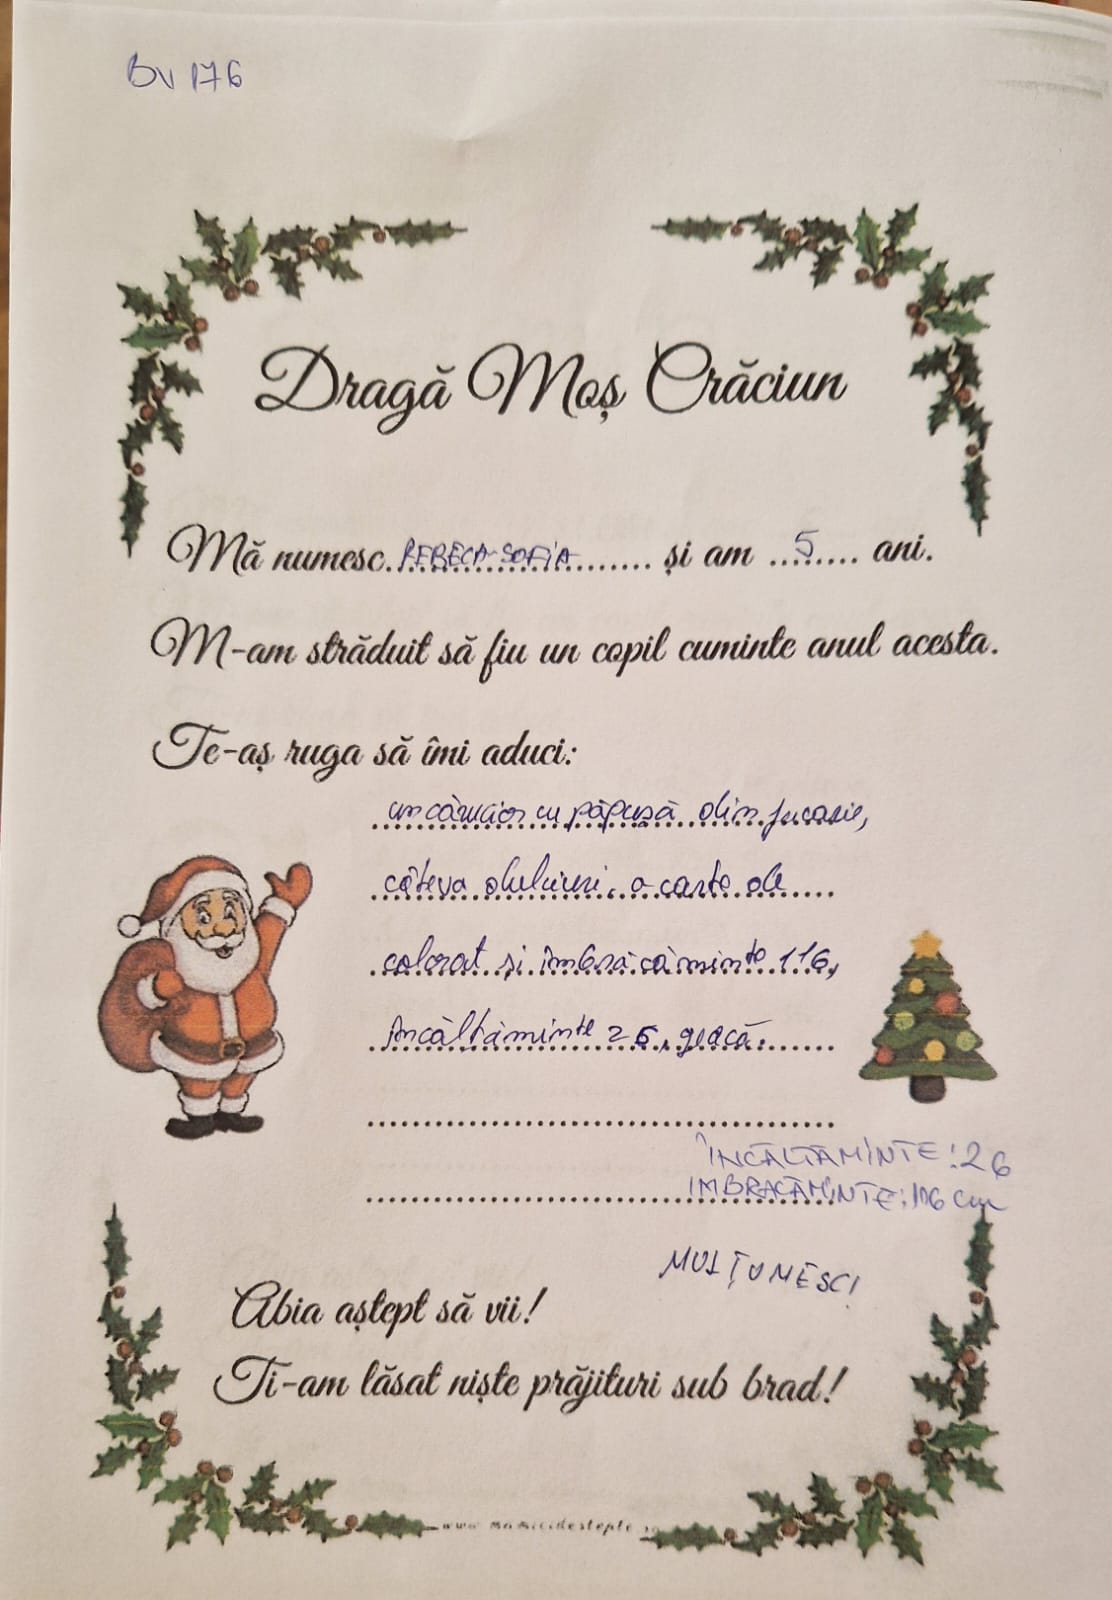 BV 176
Dragă Moș Crăciun
Mă numesc REBECA-SOFIA și am 5 ani.
M-am străduit să fiu un copil cuminte anul acesta.
Te-aș ruga să îmi aduci:
un cărucior cu păpușă din jucarie,
câteva dulciuri, o carte de
colorat și îmbrăcăminte 116,
încălțăminte 26, geacă.
ÎNCĂLȚĂMINTE: 26
IMBRĂCĂMINTE: 116 cm
MULȚUMESC!
Abia aștept să vii!
Ti-am lăsat niște prăjituri sub brad!
www.mamicidestepte